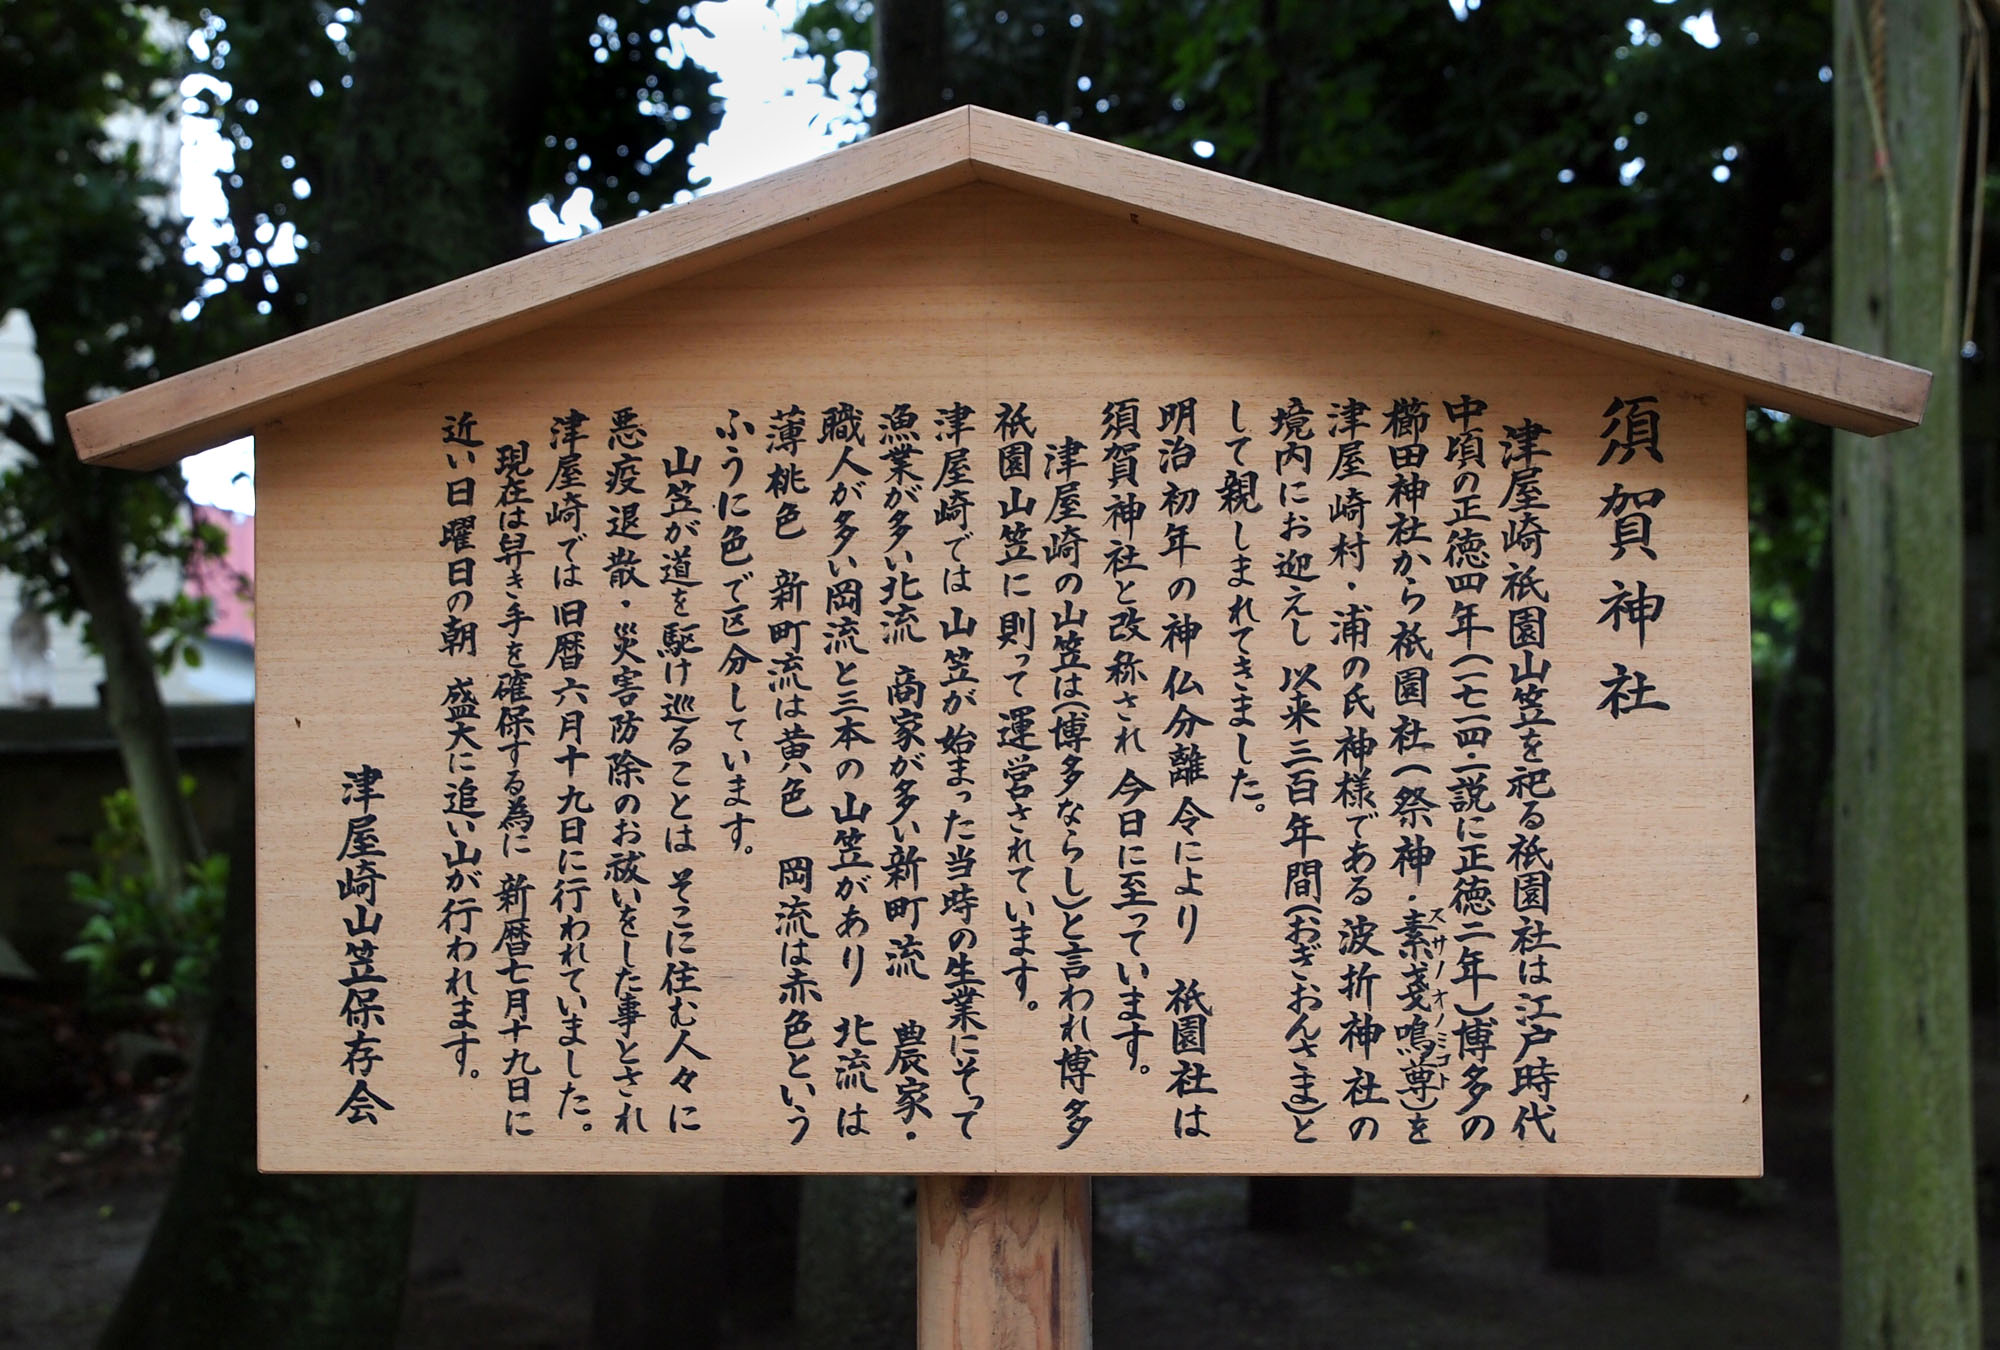 須賀神社
津屋崎祇園山笠を祀る祇園社は江戸時代
中頃の正徳四年(一七一四・一説に正徳二年)博多の
櫛田神社から祇園社(祭神・素戔嗚尊)を
スサノオノミコト
津屋崎村・浦の氏神様である波折神社の
境内にお迎えし以来三百年間(おぎおんさま)と
して親しまれてきました。
明治初年の神仏分離令により 祇園社は
須賀神社と改称され今日に至っています。
津屋崎の山笠は(博多ならし)と言われ博多
祇園山笠に則って運営されています。
津屋崎では山笠が始まった当時の生業にそって
漁業が多い北流 商家が多い新町流 農家・
職人が多い岡流と三本の山笠があり 北流は
薄桃色 新町流は黄色 岡流は赤色という
ふうに色で区分しています。
山笠が道を駆け巡ることは そこに住む人々に
悪疫退散・災害防除のお祓いをした事とされ
津屋崎では旧暦六月十九日に行われていました。
現在は舁き手を確保する為に 新暦七月十九日に
近い日曜日の朝 盛大に追い山が行われます。
津屋崎山笠保存会